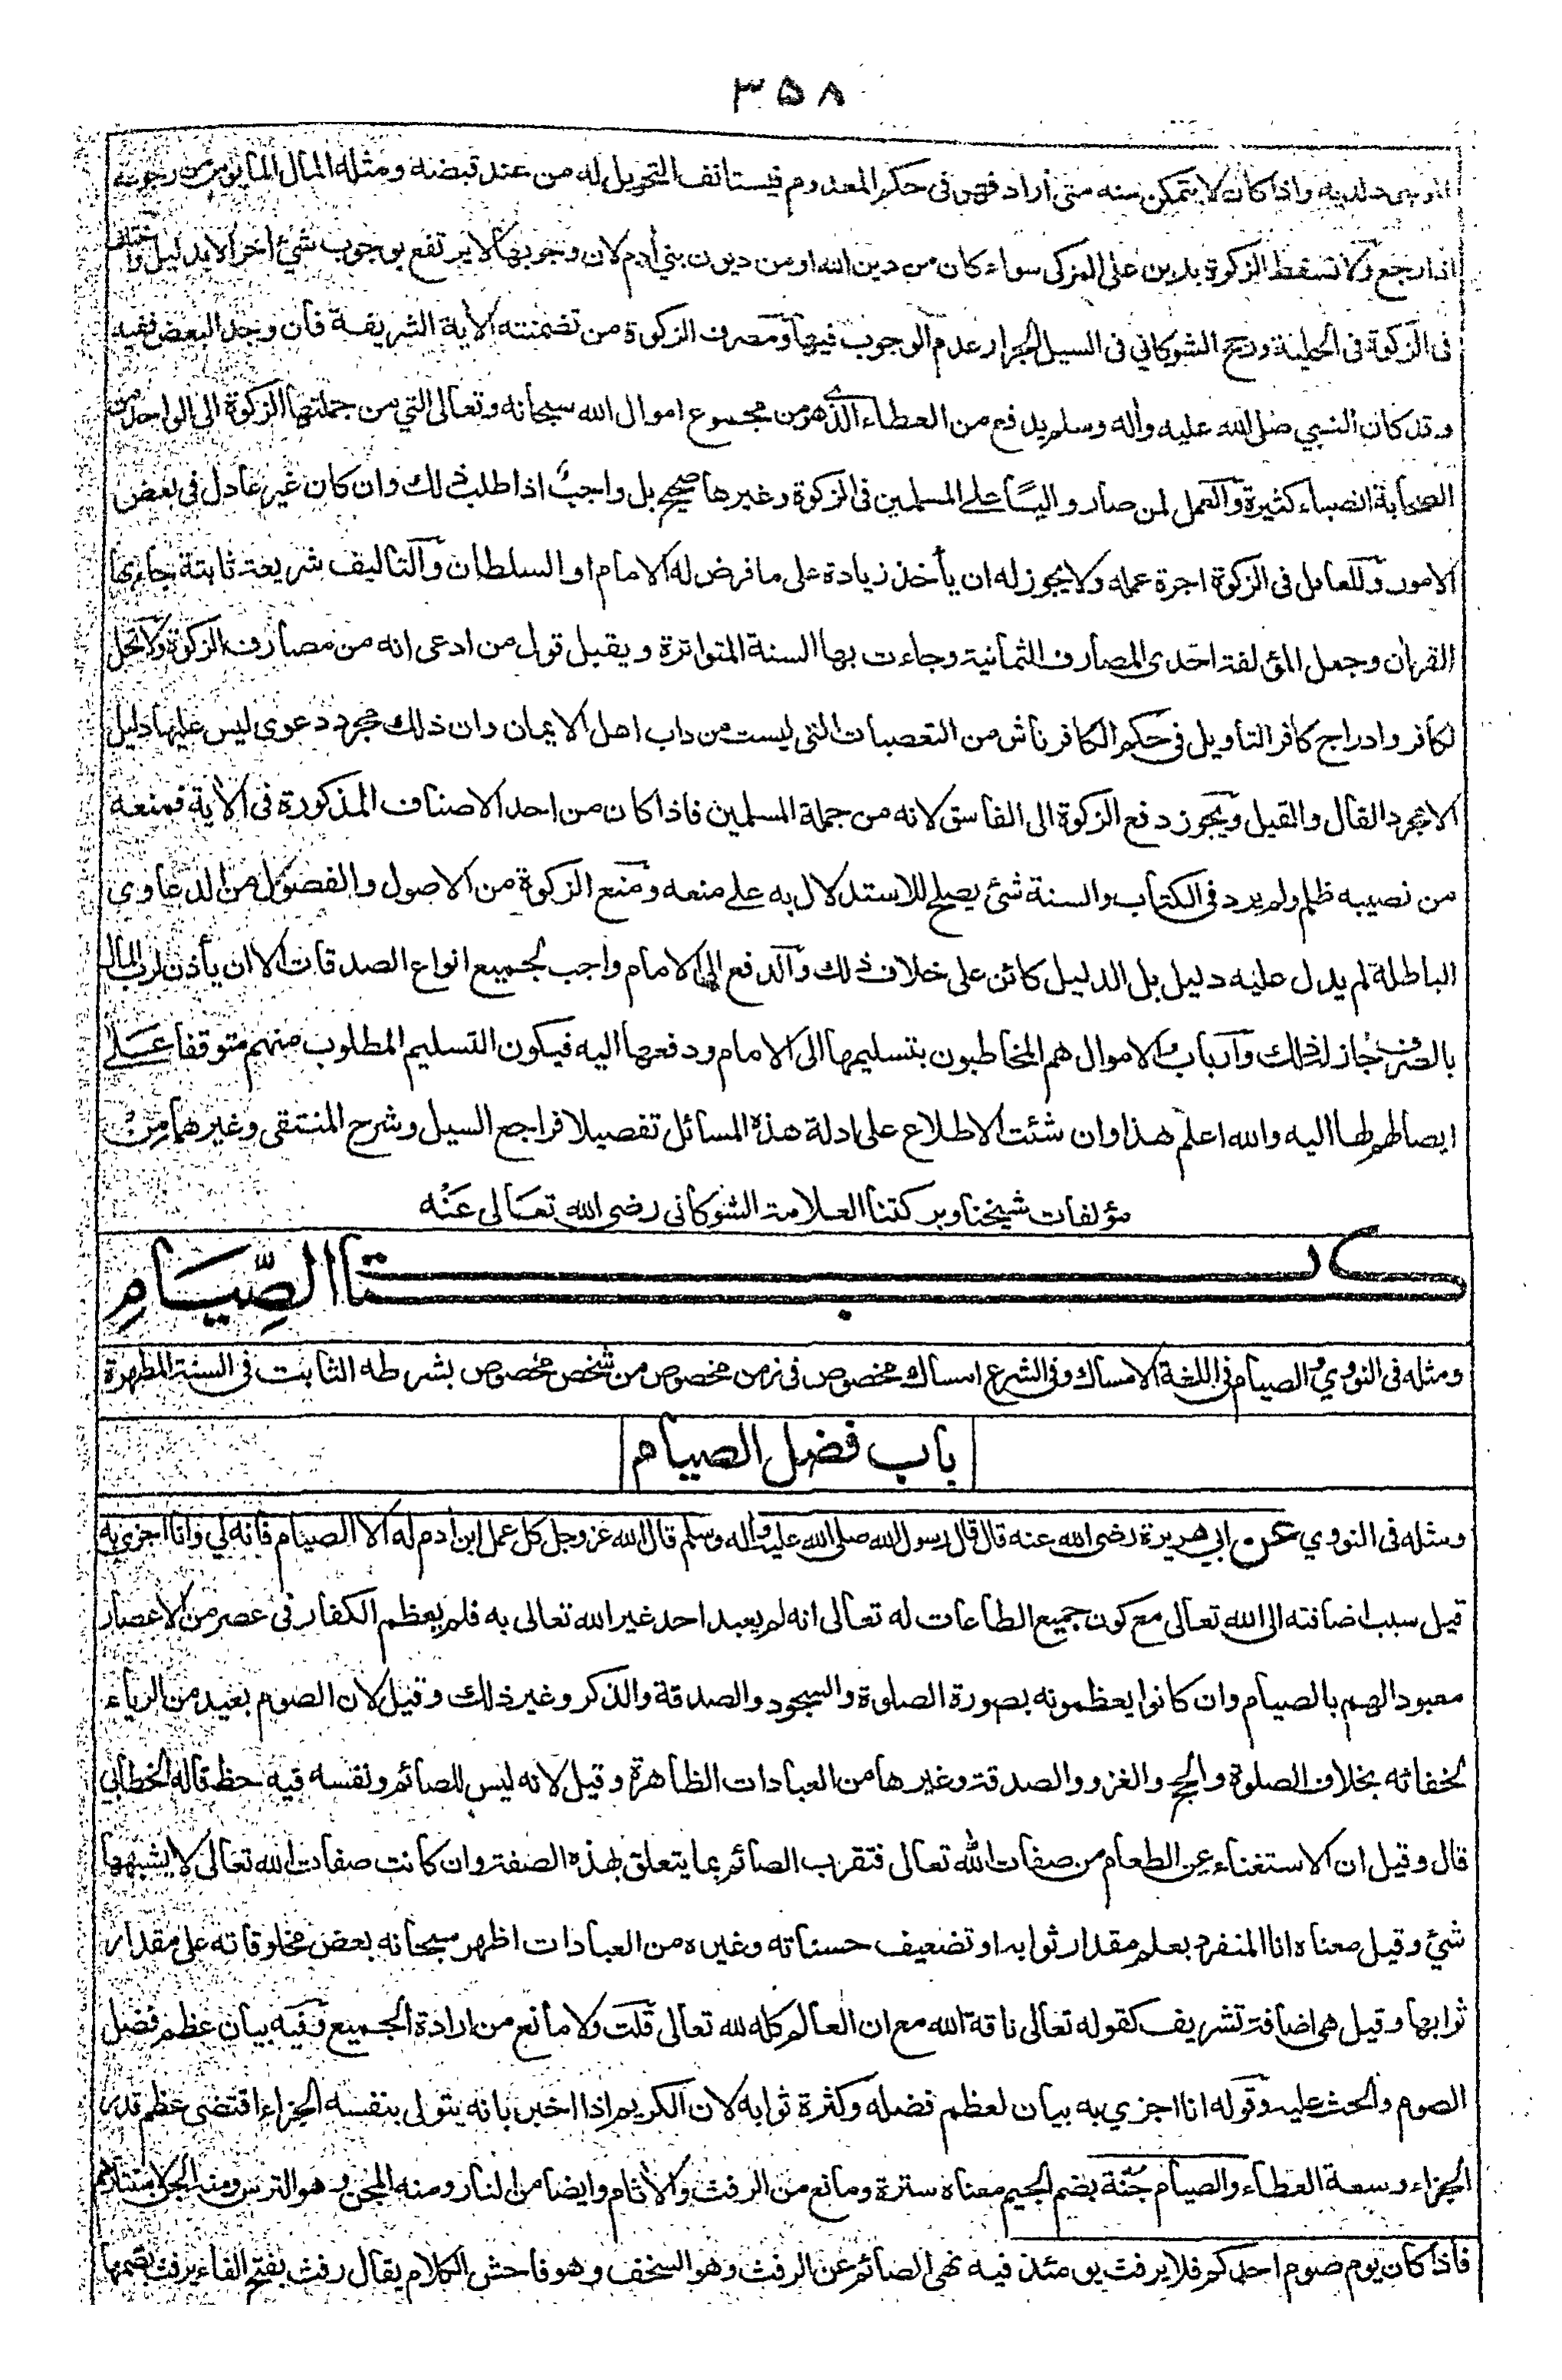 ٣٥٨
لديه واذا كان لا يتمكن منه متى أراد فهى فى حكم المعدوم فيستانف التحويل له من عند قبضه ومثله المال المايوس من رجوعه
اذا رجع ولا تسقط الزكوة بدين على المزكى سواء كان من دين الله او من ديون بني أدم لان وجوبها لا يرتفع بوجوب شئ أخر الا بدليل واختلف
فى الزكوة فى الحلية ورجح الشوكاني فى السيل الجرار عدم الوجوب فيها ومصرف الزكوة من تضمنته الأية الشريفة فان وجد البعض ففيه
وقد كان النبي صلى الله عليه وأله وسلم يدفع من العطاء الذي هو من مجموع اموال الله سبحانه وتعالى التي من جملتها الزكوة الى الواحد من
الصحابة انصباء كثيرة والعمل لمن صار واليًا على المسلمين فى الزكوة وغيرها صحيح بل واجبٌ اذا طلب ذلك وان كان غير عادل فى بعض
الامور وللعامل فى الزكوة اجرة عمله ولا يجوز له ان يأخذ زيادة على ما فرض له الامام او السلطان والتاليف شريعة ثابتة جاء بها
القرأن وجعل المؤلفة احدى المصارف الثمانية وجاءت بها السنة المتواترة ويقبل قول من ادعى انه من مصارف الزكوة ولا تحل
لكافر وادراج كافر التأويل فى حكم الكافر ناش من التعصبات التى ليست من داب اهل الايمان وان ذلك مجرد دعوى ليس عليها دليل
الا مجرد القال والقيل ويجوز دفع الزكوة الى الفاسق لانه من جملة المسلمين فاذا كان من احد الاصناف المذكورة فى الأية فمنعه
من نصيبه ظلم ولم يرد فى الكتاب والسنة شئ يصلح للاستدلال به على منعه ومنع الزكوة من الاصول والفصول من الدعاوى
الباطلة لم يدل عليه دليل بل الدليل كائن على خلاف ذلك والدفع الى الامام واجب لجميع انواع الصدقات الا ان يأذن لرب المال
بالصرف جاز له ذلك وأرباب الاموال هم المخاطبون بتسليمها الى الامام ودفعها اليه فيكون التسليم المطلوب منهم متوقفا على
ايصالهم لها اليه والله اعلم هذا وان شئت الاطلاع على ادلة هذه المسائل تفصيلا فراجع السيل وشرح المنتقى وغيرهما من
مؤلفات شيخنا وبركتنا العلامة الشوكانى رضى الله تعالى عنه
كتاب الصِّيَامِ
ومثله فى النووي والصيام فى اللغة الامساك وفى الشرع امساك مخصوص فى زمن مخصوص من شخص مخصوص بشرطه الثابت فى السنة المطهرة
باب فضل الصيام
ومثله فى النووي عن ابي هريرة رضى الله عنه قال قال رسول الله صلى الله عليه وأله وسلم قال الله عز وجل كل عمل ابن أدم له الا الصيام فانه لي وانا اجزي به
قيل سبب اضافته الى الله تعالى مع كون جميع الطاعات له تعالى انه لم يعبد احد غير الله تعالى به فلم يعظم الكفار فى عصر من الاعصار
معبودا لهم بالصيام وان كانوا يعظمونه بصورة الصلوة والسجود والصدقة والذكر وغير ذلك وقيل لان الصوم بعيد من الرياء
لخفائه بخلاف الصلوة والحج والغزو والصدقة وغيرها من العبادات الظاهرة وقيل لانه ليس للصائم ونفسه فيه حظ قاله الخطابي
قال وقيل ان الاستغناء عن الطعام من صفات الله تعالى فتقرب الصائم بما يتعلق بهذه الصفة وان كانت صفات الله تعالى لا يشبهها
شئ وقيل معناه انا المنفرد بعلم مقدار ثوابه او تضعيف حسناته وغيره من العبادات اظهر سبحانه بعض مخلوقاته على مقدار
ثوابها وقيل هى اضافة تشريف كقوله تعالى ناقة الله مع ان العالم كله لله تعالى قلت ولا مانع من ارادة الجميع وفيه بيان عظم فضل
الصوم والحث عليه وقوله انا اجزي به بيان لعظم فضله وكثرة ثوابه لان الكريم اذا اخبر بانه يتولى بنفسه الجزاء اقتضى عظم قدر
الجزاء وسعة العطاء والصيام جُنّة بضم الجيم معناه سترة ومانع من الرفث والأثام وايضا من النار ومنه المجن وهو الترس ومنه الجن لاستتارهم
فاذا كان يوم صوم احدكم فلا يرفث يومئذ فيه نهى الصائم عن الرفث وهو السخف وهو فاحش الكلام يقال رفث بفتح الفاء يرفث بضمها